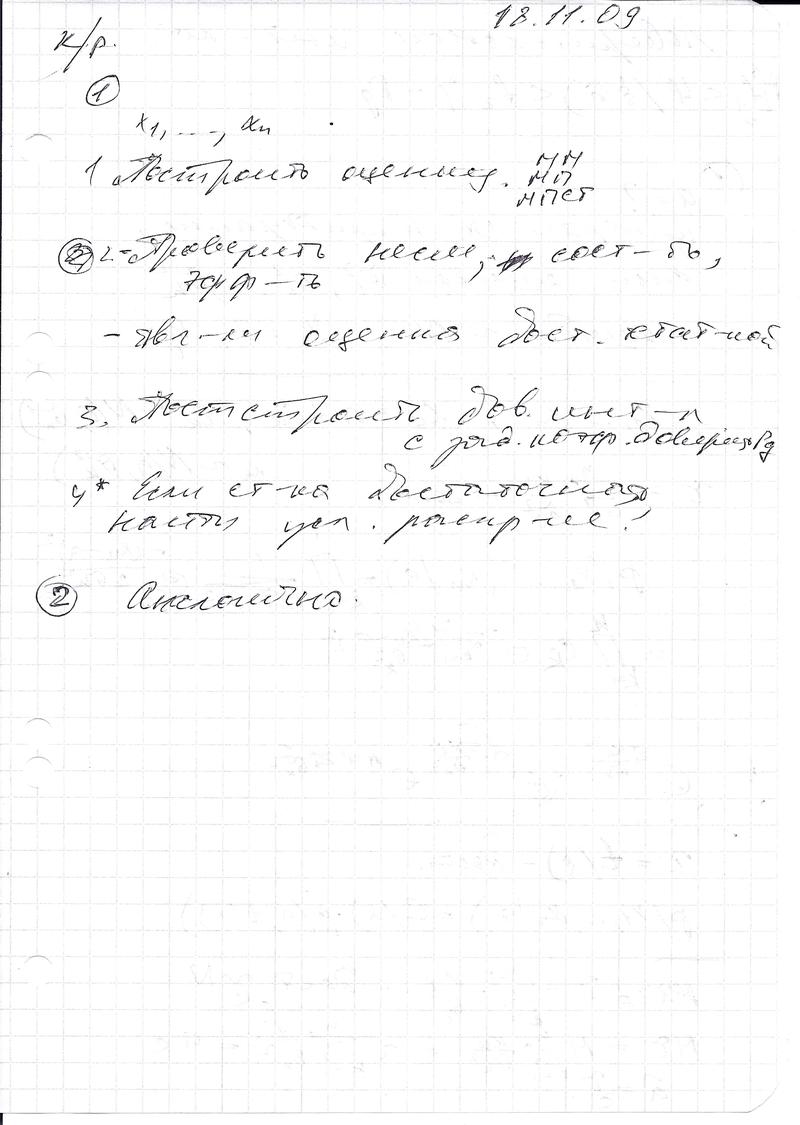 18.11.09
к/р.
①
x₁, ..., xₙ
1 Построить оценку. ММ
МП
МПСТ
2 - Проверить несм, сост-ть,
эфф-ть
- явл-ли оценка дост. стат-кой
3. Постстроить дов. инт-л
с зад. коэф. доверия Pд
4* Если ст-ка достаточная,
найти усл. распр-ие!
② Аналогично.